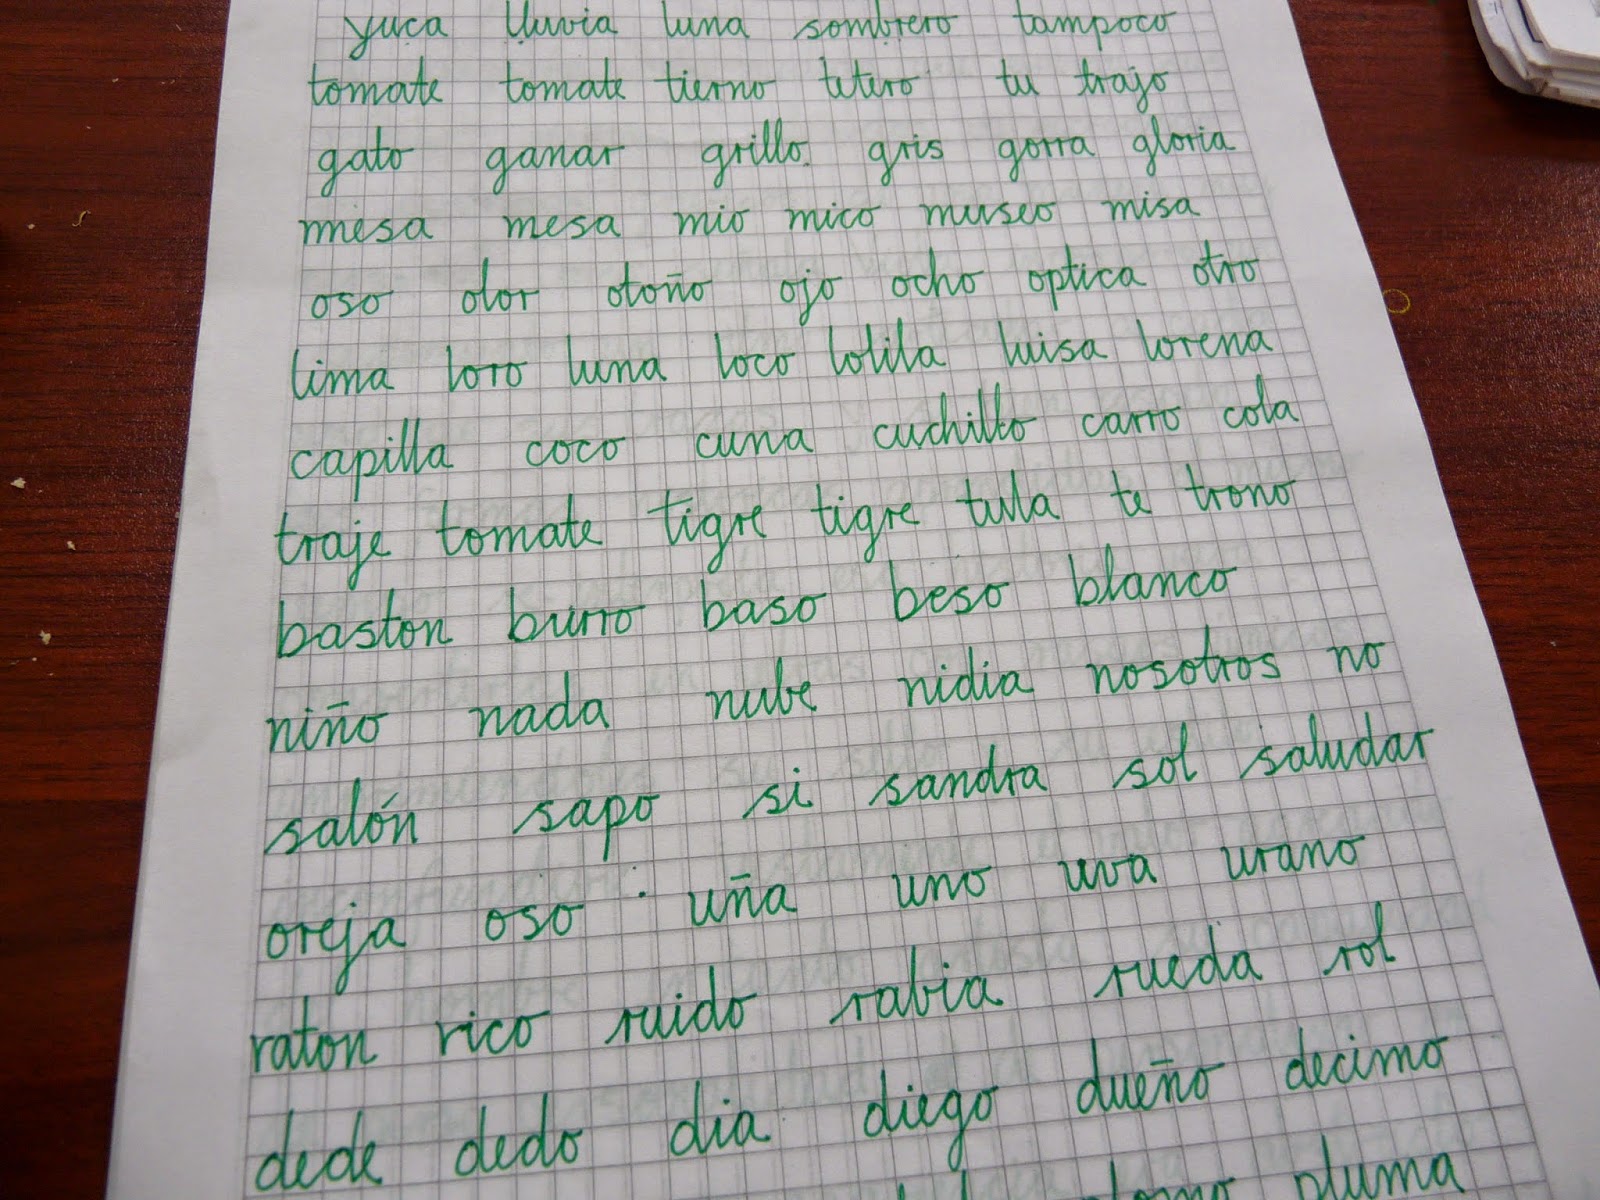 yuca lluvia luna sombrero tampoco
tomate tomate tierno tetero tu trajo
gato ganar grillo gris gorra gloria
mesa mesa mio mico museo misa
oso olor otoño ojo ocho optica otro
lima loro luna loco lolila luisa lorena
capilla coco cuna cuchillo carro cola
traje tomate tigre tigre tula te trono
baston burro baso beso blanco
niño nada nube nidia nosotros no
salón sapo si sandra sol saludar
oreja oso uña uno uva urano
raton rico ruido rabia rueda rol
dede dedo dia diego dueño decimo
pluma